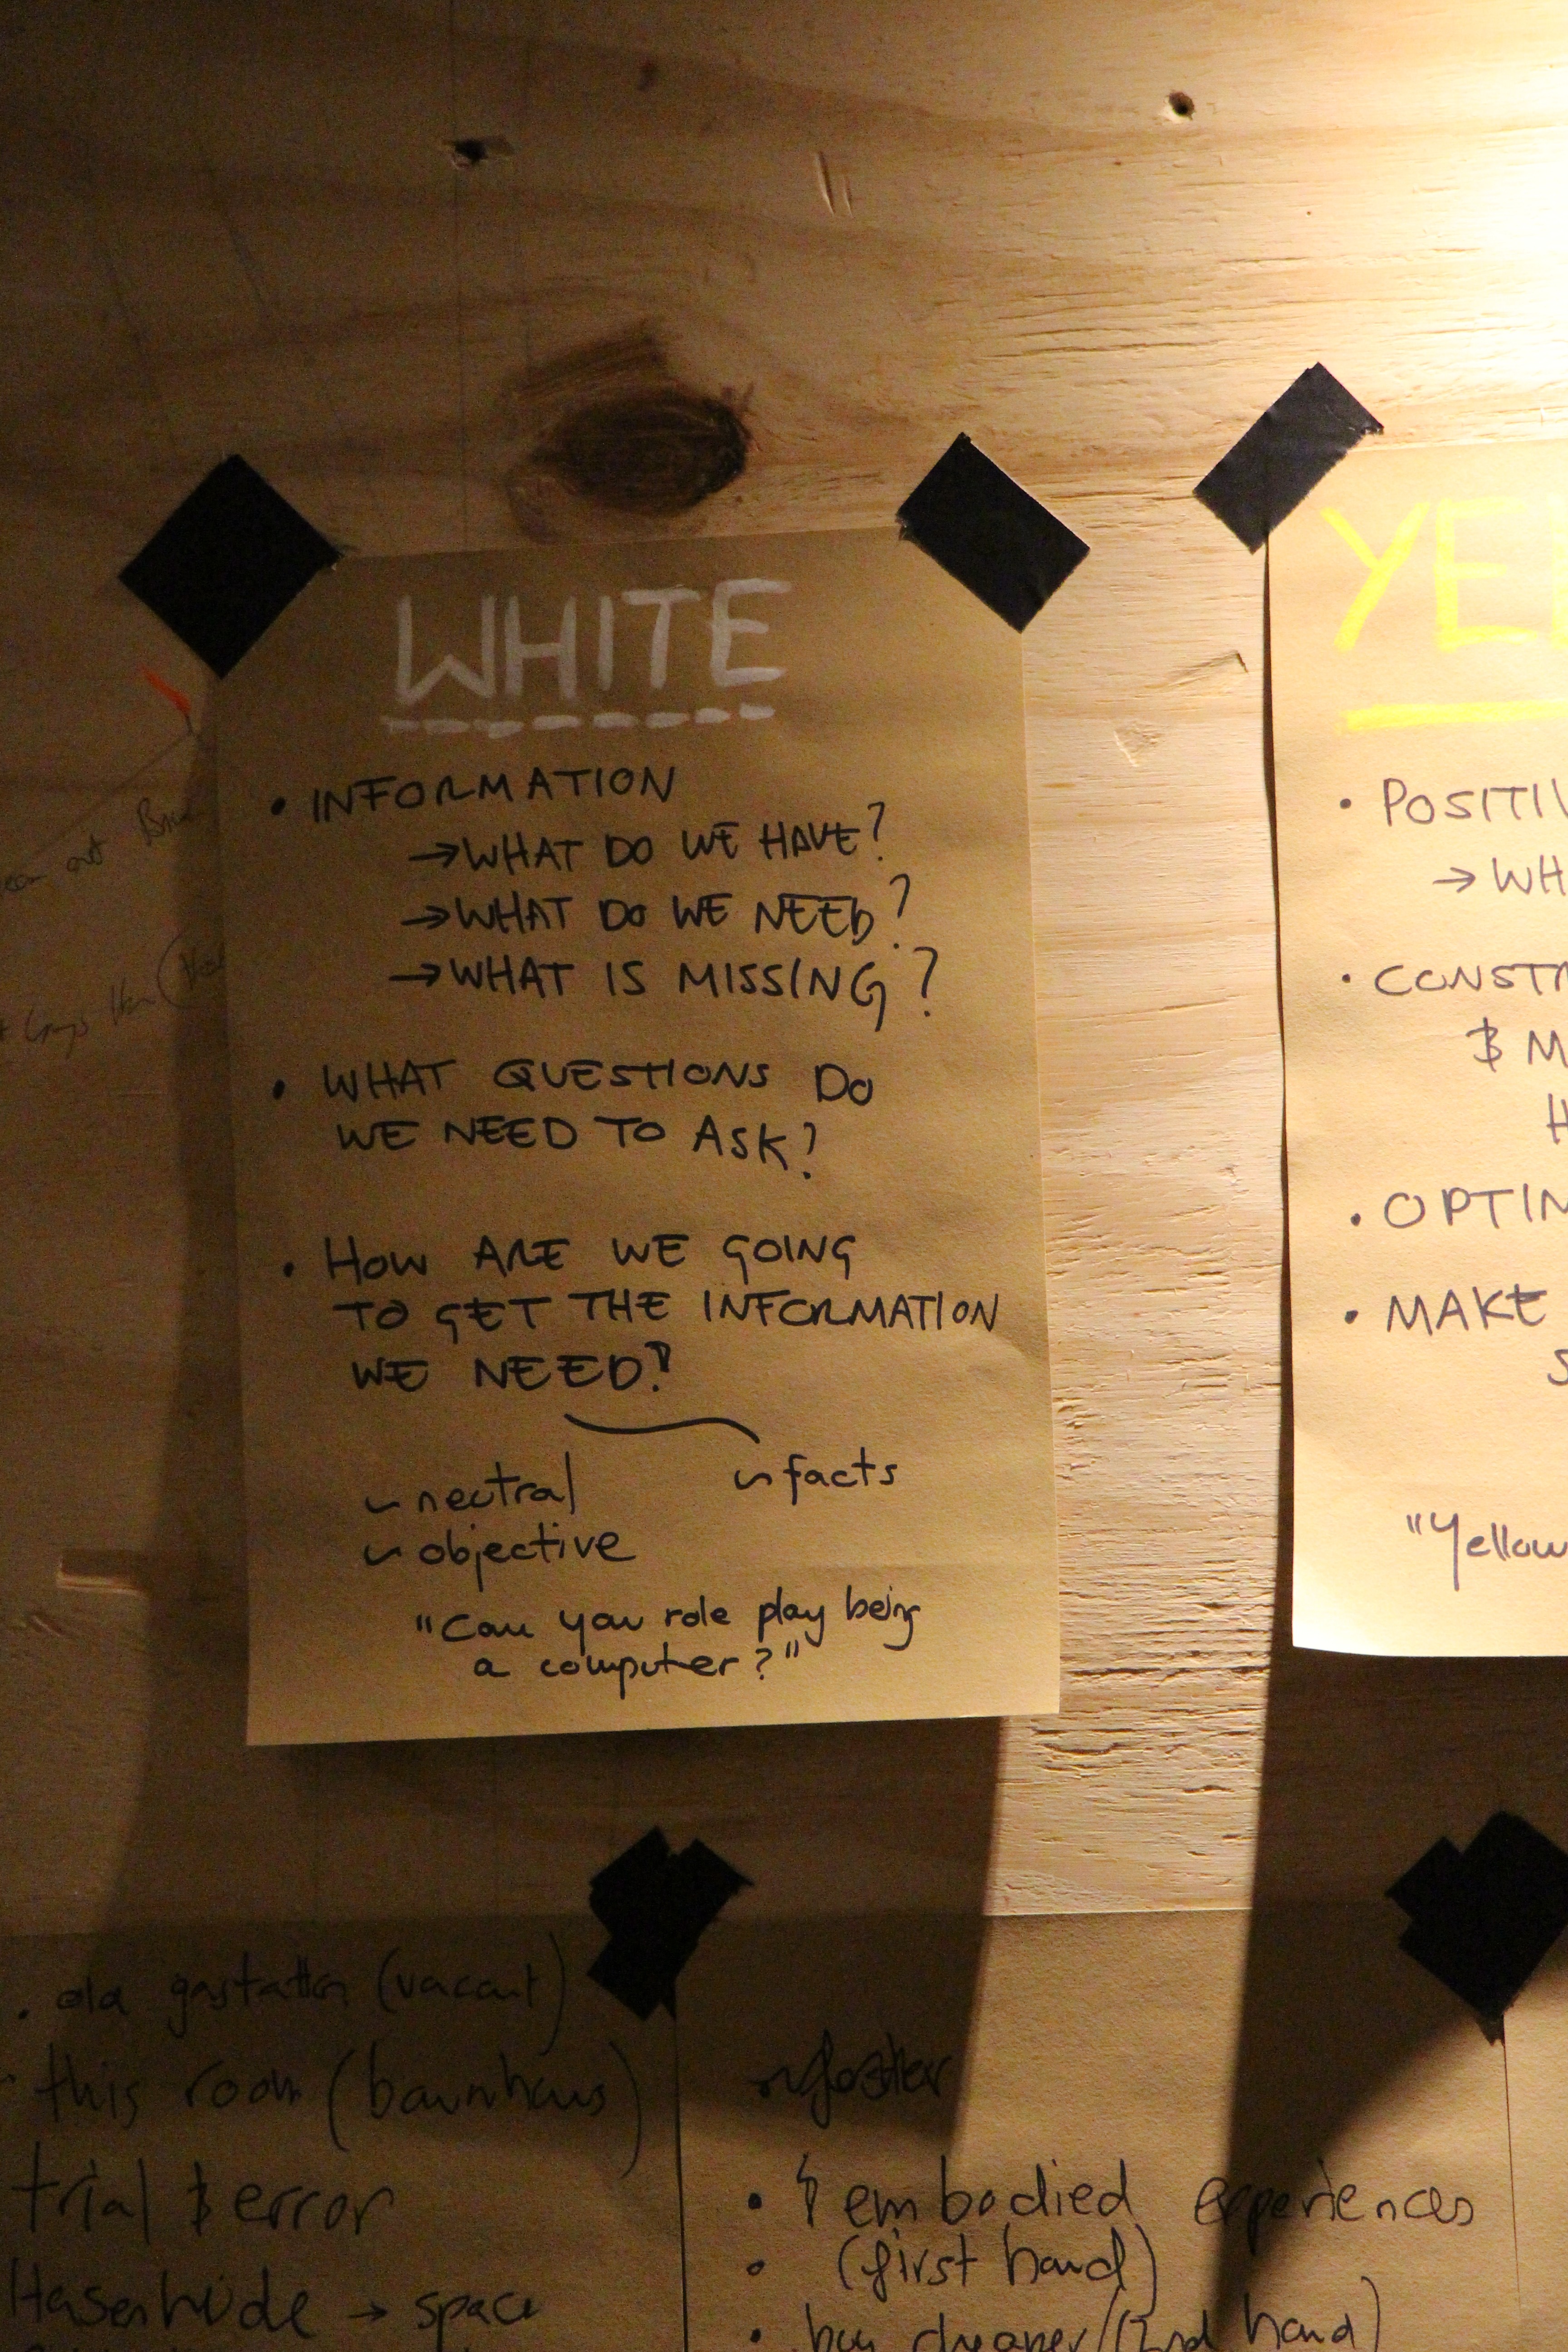 WHITE
• INFORMATION
→ WHAT DO WE HAVE?
→ WHAT DO WE NEED?
→ WHAT IS MISSING?
• WHAT QUESTIONS DO
WE NEED TO ASK?
• HOW ARE WE GOING
TO GET THE INFORMATION
WE NEED?
~ neutral
~ facts
~ objective
"Can you role play being
a computer?"
YE
• POSITIV
→ WH
• CONSTR
& M
H
• OPTIM
• MAKE
S
"Yellow
(vacant)
this room (baumhaus)
trial & error
Hasenheide → space
• embodied experiences
• (first hand)
• buy cheaper/(2nd hand)